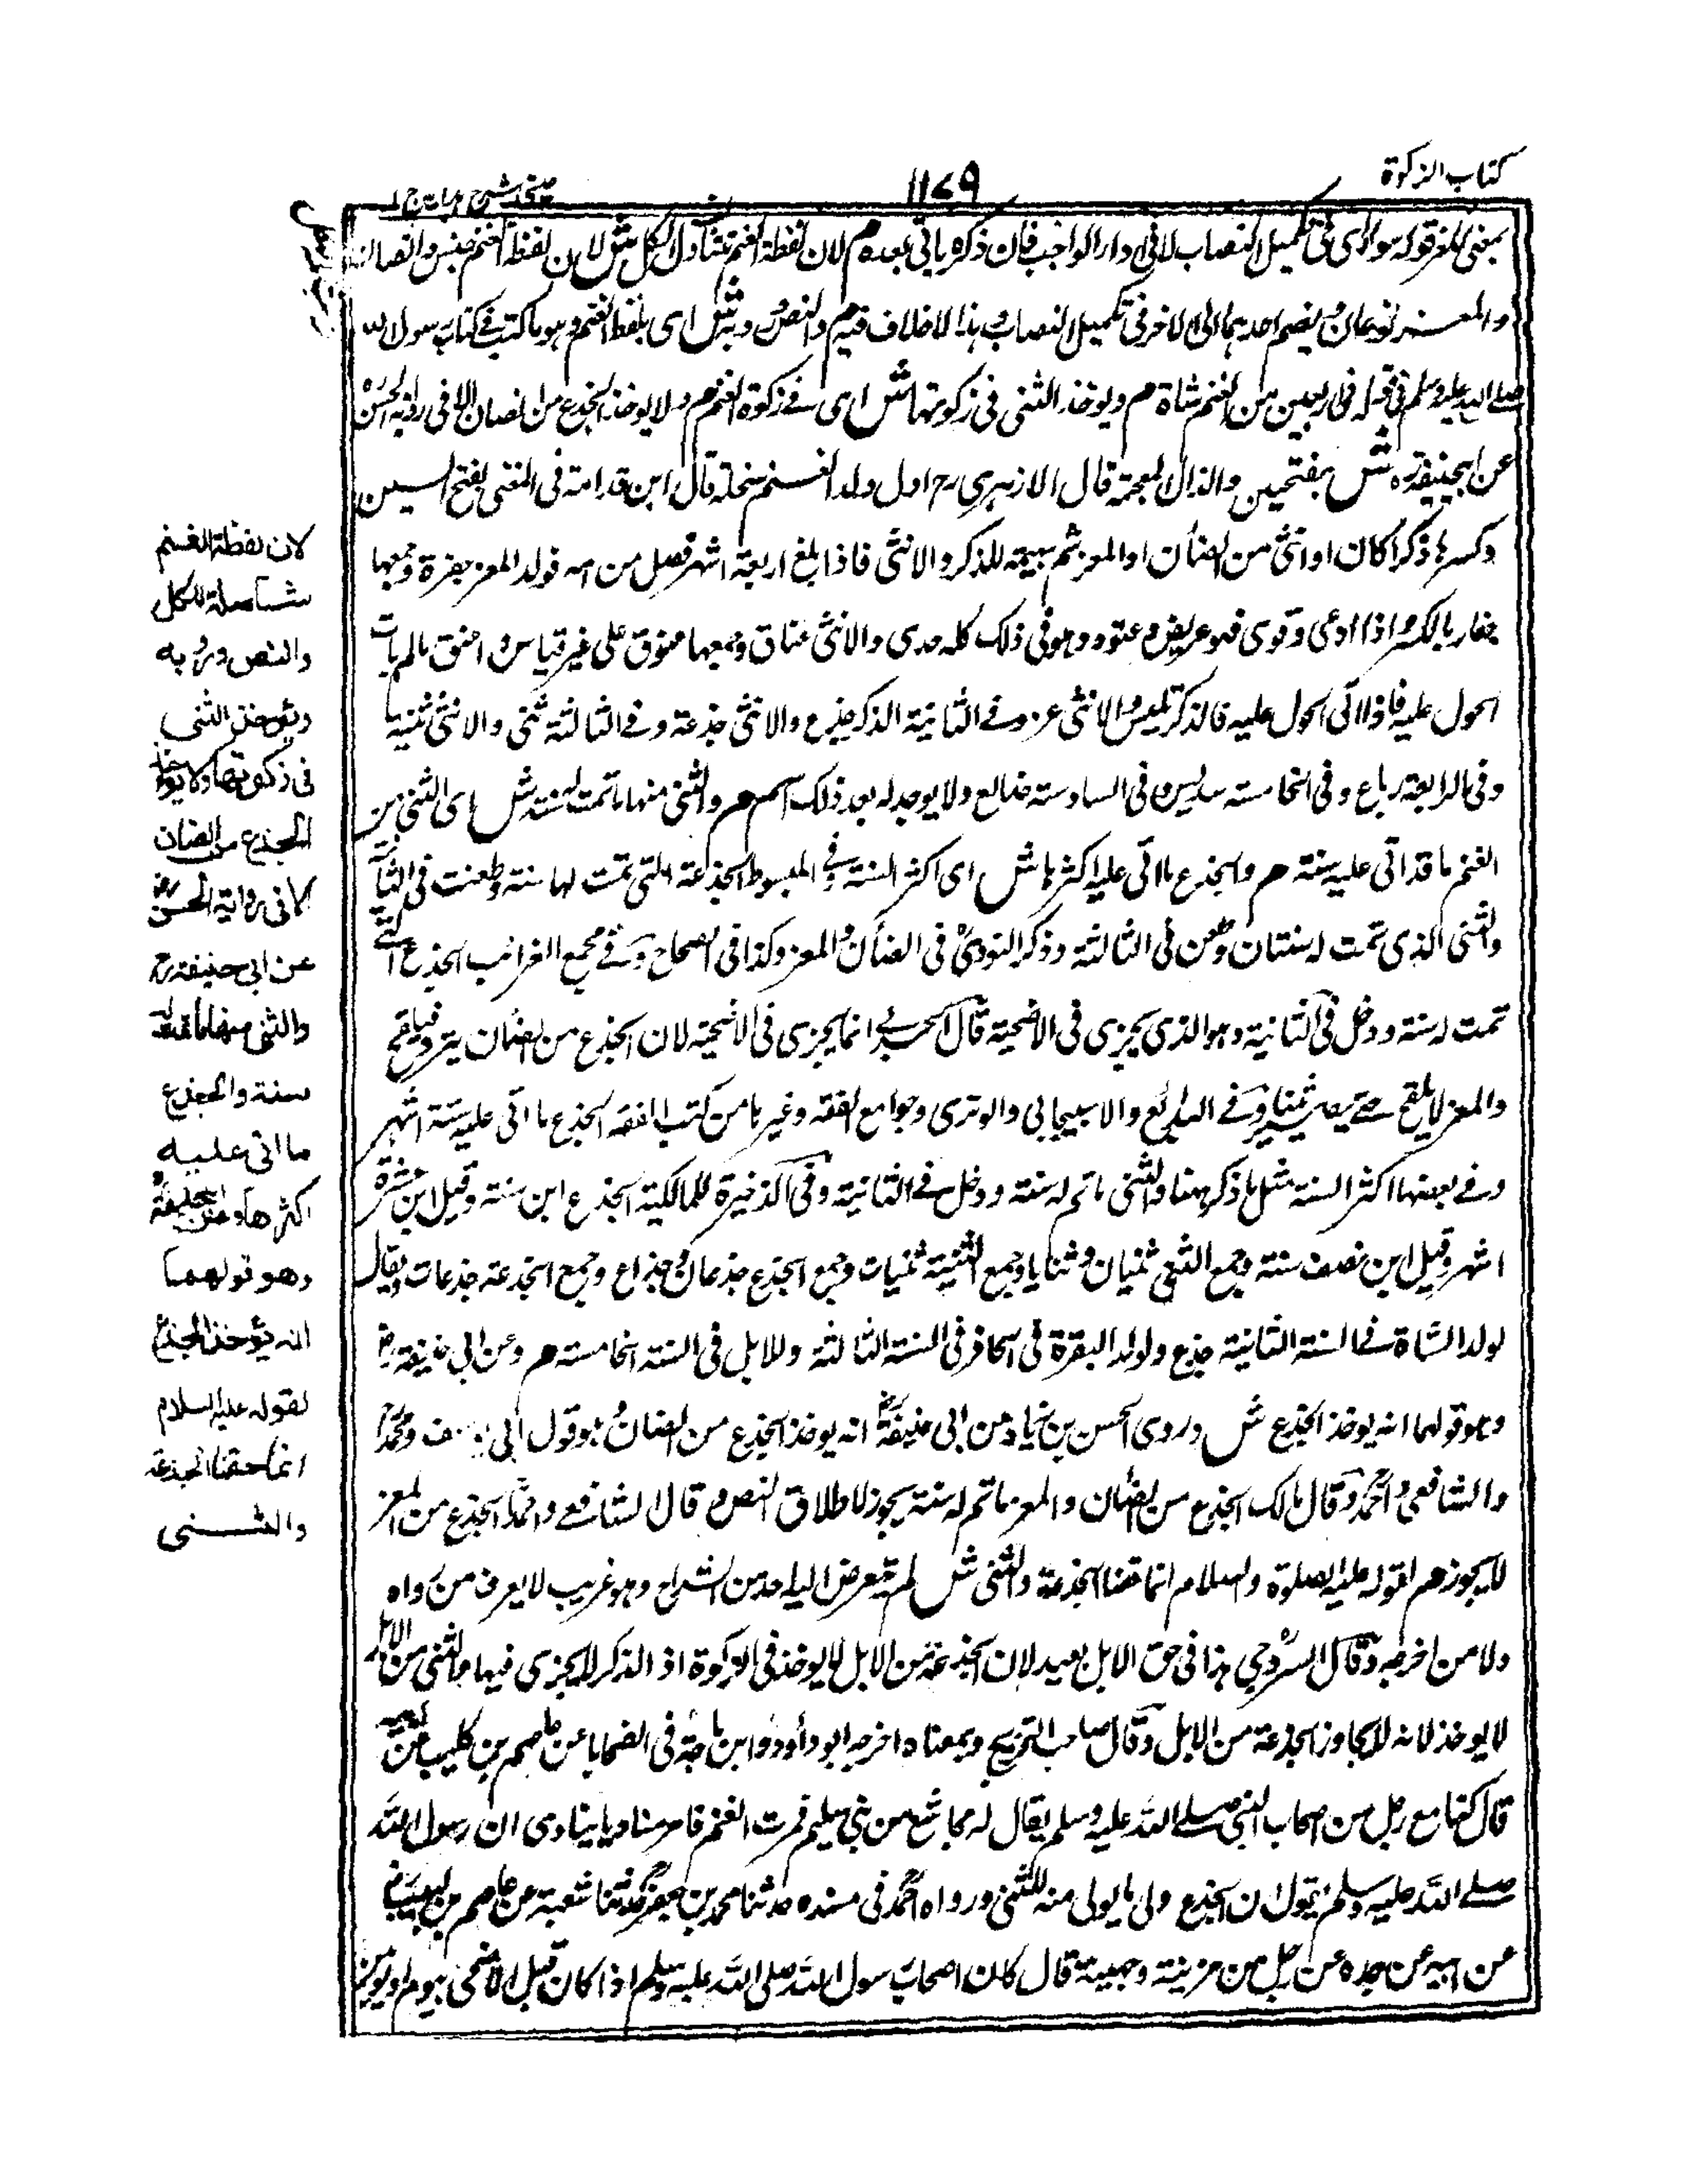 كتاب الزكوة
١١٧٩
عينى شرح هداية ج ١
بمعنى المعز قوله سواء اى فى تكميل النصاب لا فى اداء الواجب فان ذكره ياتى بعده م لان لفظة الغنم تتناول الكل ش لان لفظة الغنم جنس والضان
والمعز نوعان يضم احدهما الى الاخر فى تكميل النصاب وهذا لا خلاف فيه م والنص ورد به ش اى بلفظ الغنم وهو ما كتب فى كتاب رسول الله
صلى الله عليه وسلم فى قوله فى اربعين من الغنم شاة م ويوخذ الثنى فى زكوتها ش اى فى زكوة الغنم م ولا يوخذ الجذع من الضان الا فى رواية الحسن
عن ابيحنيفة ره ش بفتحتين والذال المعجمة قال الازهرى رح اول ولد الغنم سخلة قال ابن قدامة فى المغنى بفتح السين
وكسرها ذكرا كان او انثى من الضأن او المعز ثم بهيمة للذكر والانثى فاذا بلغ اربعة اشهر فصل من امه فولد المعز جفرة وجمعها
جفار بالكسر واذا ادعى وقوى فهو عريض وعتود وهو فى ذلك كله جدى والانثى عناق وجمعها عنوق على غير قياس واعنق مالم يات
الحول عليه فاذا اتى الحول عليه فالذكر تيس والانثى عنز وفى الثانية الذكر جذع والانثى جذعة وفى الثالثة ثنى والانثى ثنية
وفى الرابعة رباع وفى الخامسة سديس وفى السادسة ضالع ولا يوجد له بعد ذلك اسم م والثنى منها ما تمت له سنة ش اى الثنى من
الغنم ما قد اتى عليه سنة م والجذع ما اتى عليه اكثرها ش اى اكثر السنة وفى المبسوط الجذعة التى تمت لها سنة وطعنت فى الثانية
والثنى الذى تمت له سنتان وطعن فى الثالثة وذكر النووى فى الضأن والمعز وكذا فى الصحاح وفى مجمع الغرائب الجذع التى
تمت له سنة ودخل فى الثانية وهو الذى يجزى فى الاضحية قال الحربى انما يجزى فى الاضحية لان الجذع من الضأن ينزو فيلقح
والمعز لا يلقح حتى يصير ثنيا وفى البدائع والاسبيجابى والوترى وجوامع الفقه وغيرها من كتب الفقه الجذع ما اتى عليه ستة اشهر
وفى بعضها اكثر السنة مثل ما ذكر هنا والثنى ما تم له سنة ودخل فى الثانية وفى الذخيرة للمالكية الجذع ابن سنة وقيل ابن عشرة
اشهر وقيل ابن نصف سنة وجمع الثنى ثنيان وثنايا وجمع الثنية ثنيات وجمع الجذع جذعان وجذاع وجمع الجذعة جذعات ويقال
لولد الشاة فى السنة الثانية جذع ولولد البقرة فى الحافر فى السنة الثالثة وللابل فى السنة الخامسة م وعن ابى حنيفة رح
وهو قولهما انه يوخذ الجذع ش وروى الحسن بن زياد عن ابى حنيفة رض انه يوخذ الجذع من الضان وهو قول ابى يوسف ومحمد رح
والشافعى واحمد وقال مالك الجذع من الضأن والمعز ما تم له سنة يجوز لاطلاق النص وقال الشافعى واحمد الجذع من المعز
لا يجوز م لقوله عليه الصلوة والسلام انما حقنا الجذعة والثنى ش لم يتعرض اليه احد من الشراح وهو غريب لا يعرف من رواه
ولا من اخرجه وقال السروجى هذا فى حق الابل بعيد لان الجذعة من الابل لا يوخذ فى الزكوة اذ الذكر لا يجزى فيها والثنى من الابل
لا يوخذ لانه لا يجاوز الجذعة من الابل وقال صاحب التخريج وبمعناه اخرجه ابو داود وابن ماجة فى الضحايا عن عاصم بن كليب عن ابيه
قال كنا مع رجل من اصحاب النبى صلى الله عليه وسلم يقال له مجاشع من بنى سليم فعزت الغنم فامر مناديا ينادى ان رسول الله
صلى الله عليه وسلم يقول ان الجذع وفى ما يوفى منه الثنى ورواه احمد فى مسنده حدثنا محمد بن جعفر حدثنا شعبة عن عاصم بن كليب
عن ابيه عن جده عن رجل من مزينة وجهينة قال كان اصحاب رسول الله صلى الله عليه وسلم اذا كان قبل الاضحى بيوم او يومين
لان لفظة الغنم
شاملة للكل
والنص ورد به
ويؤخذ الثنى
فى زكوتها ولا يؤخذ
الجذع من الضان
الا فى رواية الحسن
عن ابى حنيفة رح
والثنى منها ما تمت له
سنة والجذع
ما اتى عليه
اكثرها وعن ابى حنيفة
وهو قولهما
انه يؤخذ الجذع
لقوله عليه السلام
انما حقنا الجذعة
والثنى